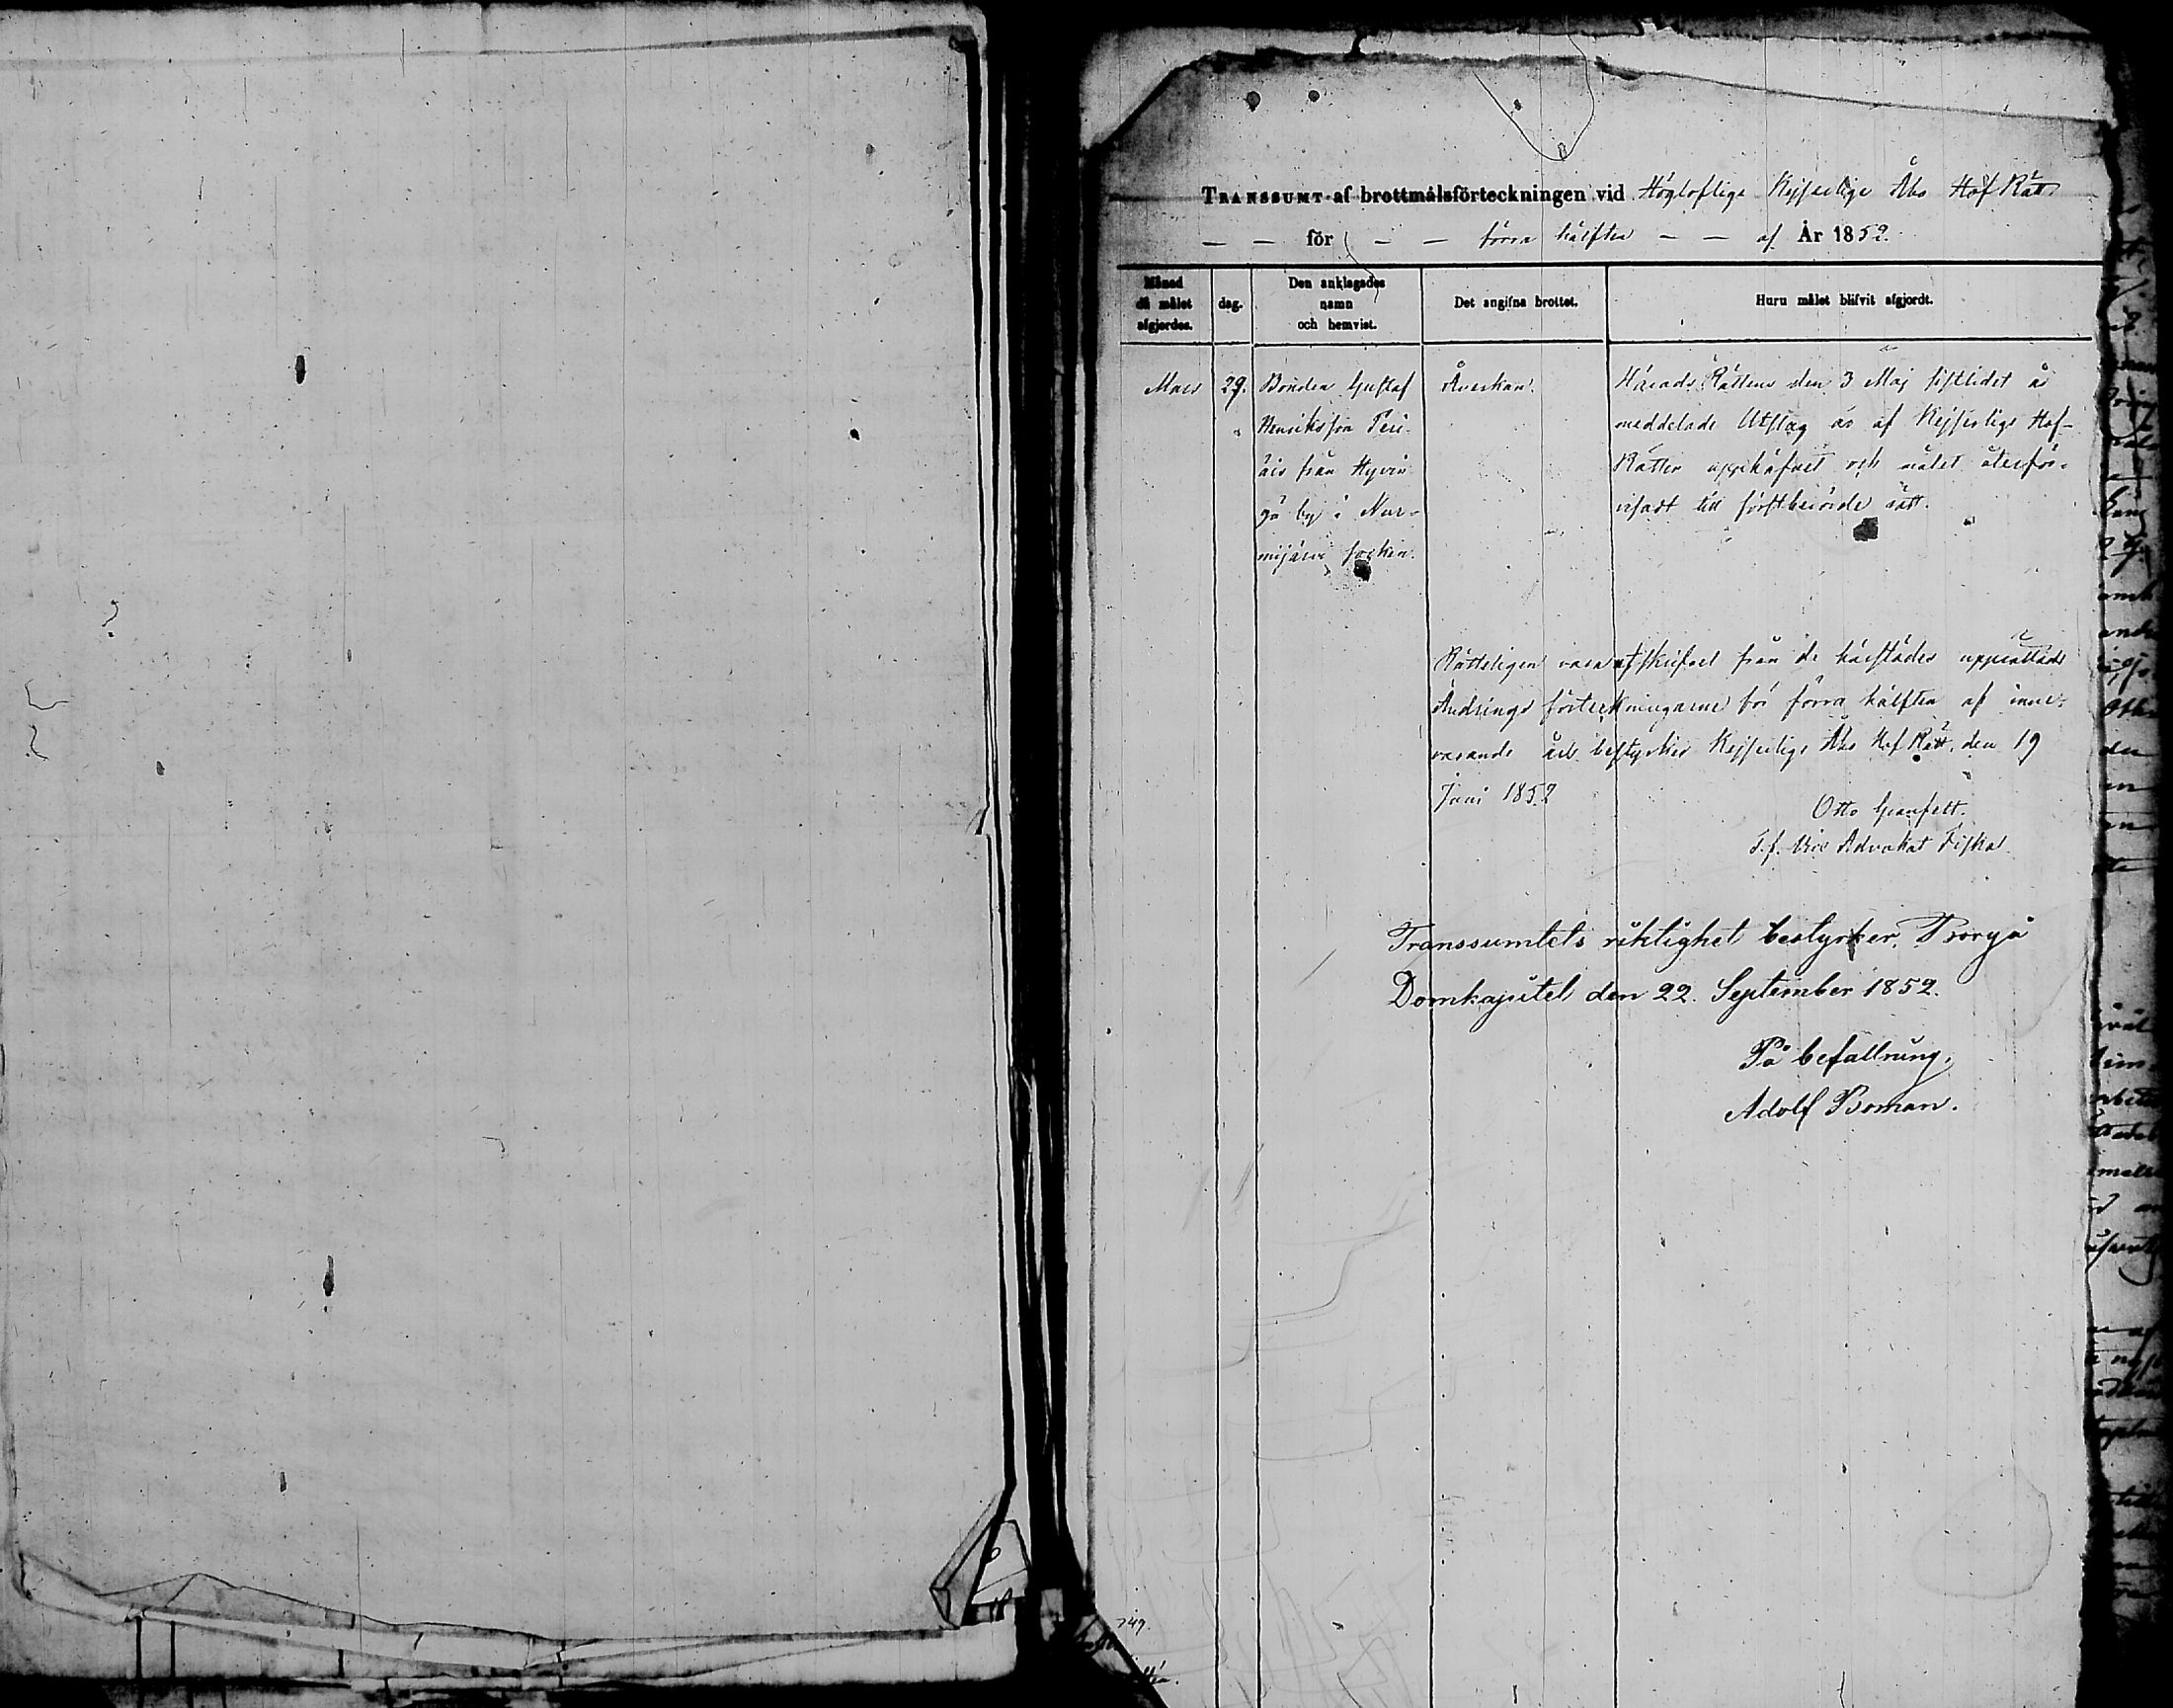 TRANSSUMT af brottmålsförteckningen vid Högloflige Kejserlige Åbo HofRätt
— — för — — förra hälften — — af År 1852.
Månad då målet afgjordes.
dag.
Den anklagades namn och hemvist.
Det angifna brottet.
Huru målet blifvit afgjordt.
Mars 29. Bonden Gustaf Åverkan. Härads Rättens den 3 Maj sistlidet år
Henriksson Peri- meddelade Utslag är af Kejserlige Hof-
äis från Hyvin- Rätten upphäfvet och målet återför-
gå by i Nur- visadt till förstberörde rätt.
mijärvi socken.
Rätteligen vara afskrifvet från de härstädes upprättade
Ändrings förteckningarne för förra hälften af inne-
varande år bestyrker Kejserlige Åbo Hof Rätt, den 19
Juni 1852
Otto Granfelt.
T.f. Vice Advokat Fiskal
Transsumtets riktighet bestyrker, Borgå
Domkapitel den 22. September 1852.
På befallning,
Adolf Boman.